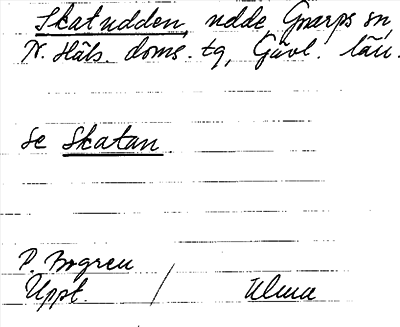 Skatudden, udde Gnarps sn,
N. Häls. doms. tg, Gävl. län.
Se Skatan
P. Bogren
Uppt. / Ulma